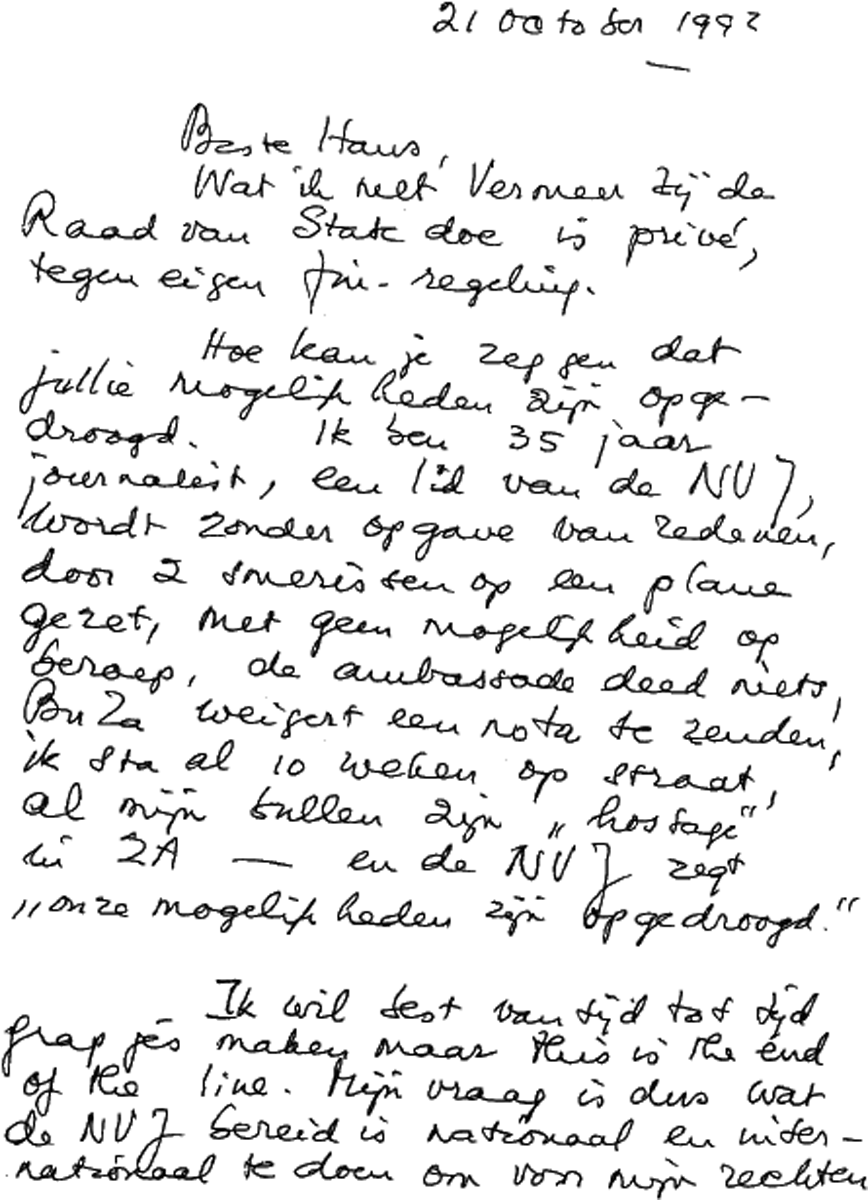 21 october 1992
Beste Hans,
Wat ik met Vermeer bij de
Raad van State doe is privé,
tegen eigen fin- regeling.
Hoe kan je zeggen dat
jullie mogelijkheden zijn opge-
droogd. Ik ben 35 jaar
journalist, een lid van de NVJ,
wordt zonder opgave van redenen,
door 2 smerissen op een plane
gezet, met geen mogelijkheid op
beroep, de ambassade deed niets,
BuZa weigert een nota te zenden,
ik sta al 10 weken op straat,
al mijn bullen zijn „hostage"
in ZA — en de NVJ zegt
„onze mogelijkheden zijn opgedroogd."
Ik wil best van tijd tot tijd
grapjes maken maar this is the end
of the line. Mijn vraag is dus wat
de NVJ bereid is nationaal en inter-
nationaal te doen om voor mijn rechten